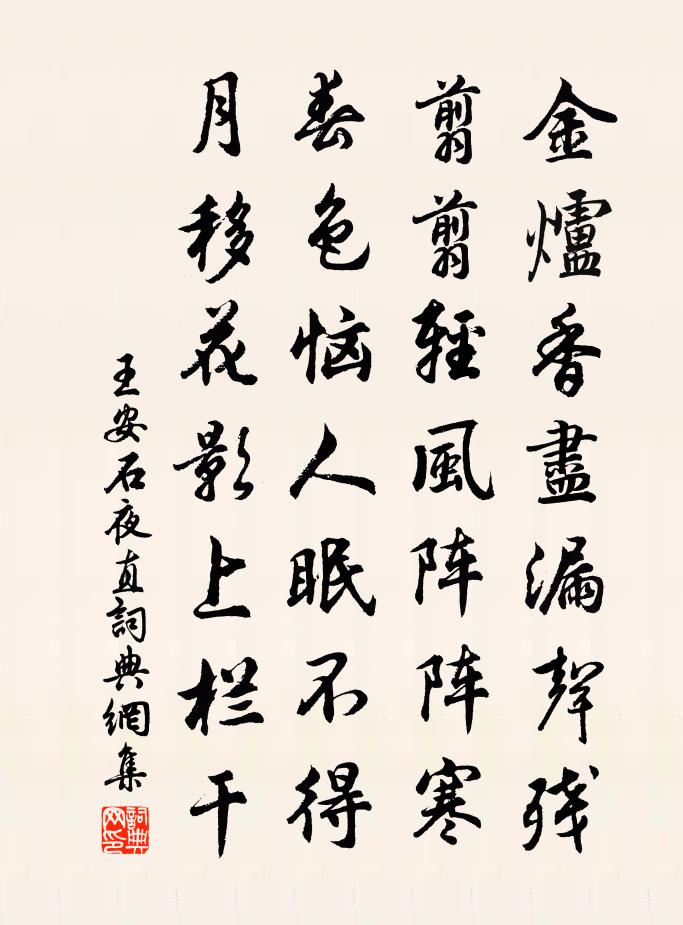 金爐香盡漏聲残
翦翦輕風阵阵寒
春色恼人眠不得
月移花影上栏干
王安石夜直詞典網集
詞典网印